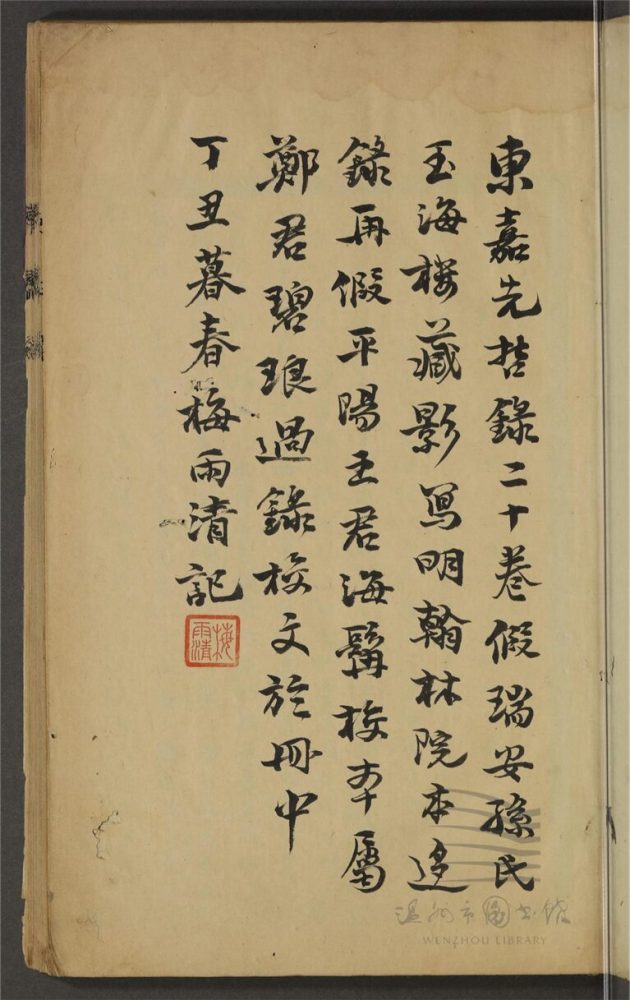 東嘉先哲錄二十卷假瑞安孫氏
玉海樓藏影寫明翰林院本迻
錄再假平陽王君海髯校夲屬
鄭君碧琅過錄校文於冊中
丁丑暮春梅雨清記
梅雨清
温州市图书馆
WENZHOU LIBRARY